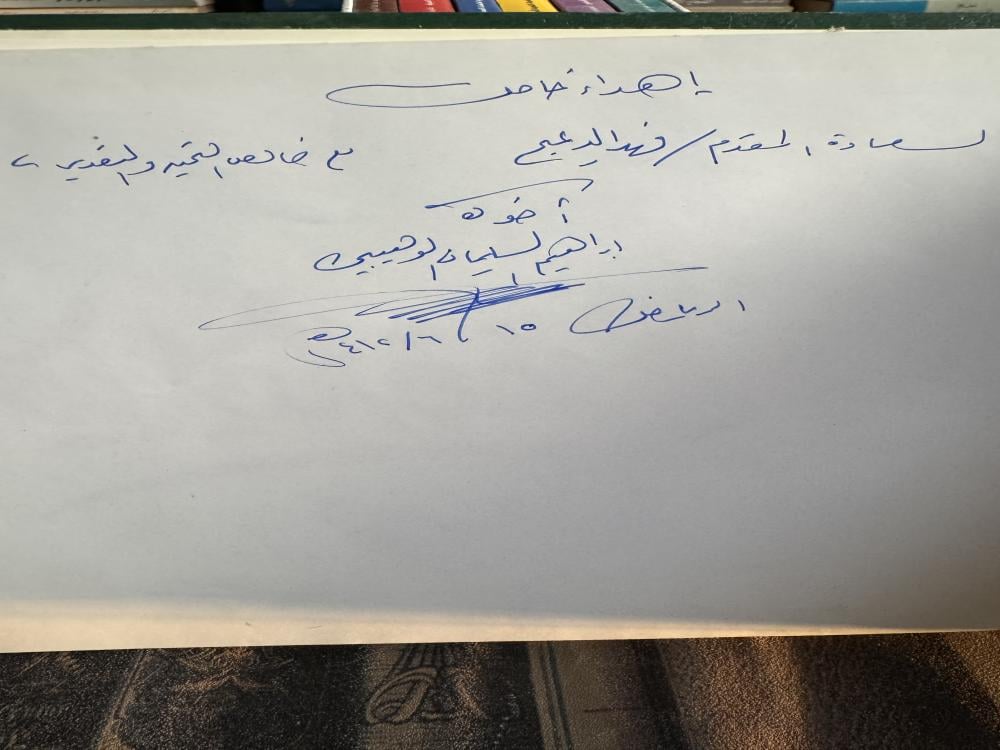 إهداء خاص
لسعادة المقدم / فهد الدعيج مع خالص التحية والتقدير ،،
أخوك
إبراهيم السليمان الوهيبي
الرياض ١٥ / ٦ / ١٤١٢هـ